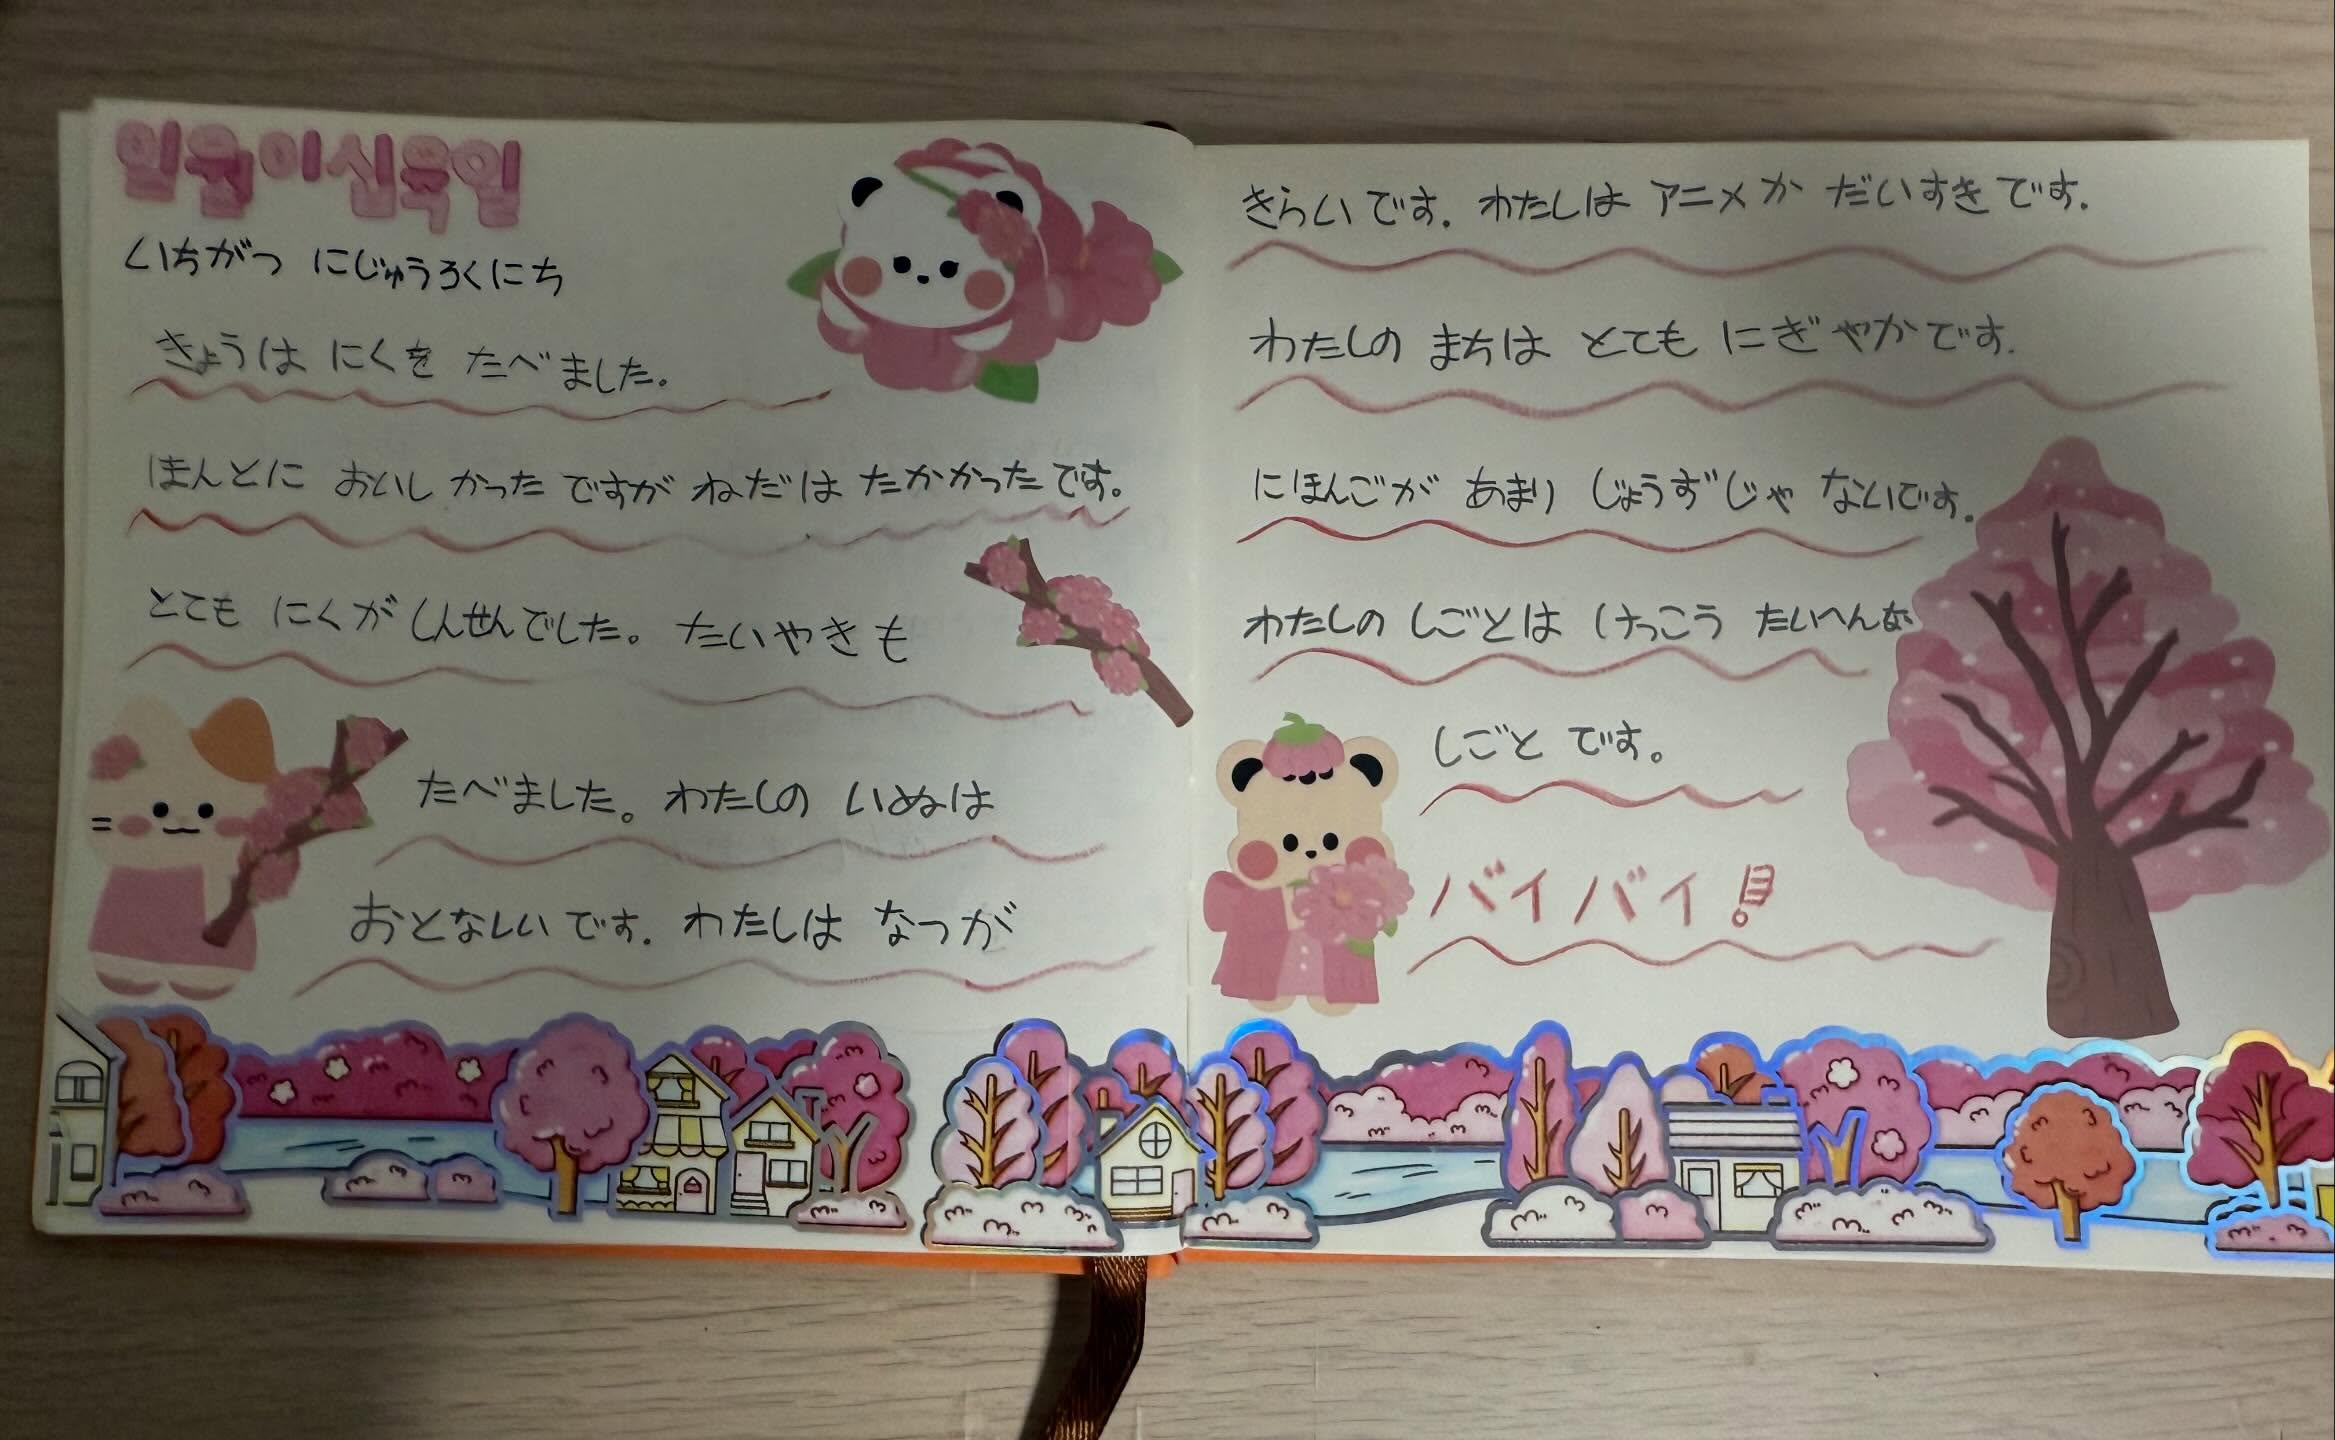 일월이십육일
いちがつ にじゅうろくにち
きょうは にくを たべました。
ほんとに おいしかったですが ねだは たかかったです。
とても にくが しんせんでした。 たいやきも
たべました。 わたしの いぬは
おとなしいです. わたしは なつが
きらいです. わたしは アニメか だいすきです.
わたしの まちは とても にぎやかです.
にほんごが あまり じょうずじゃ ないです.
わたしの しごとは けっこう たいへんな
しごと です。
バイバイ!